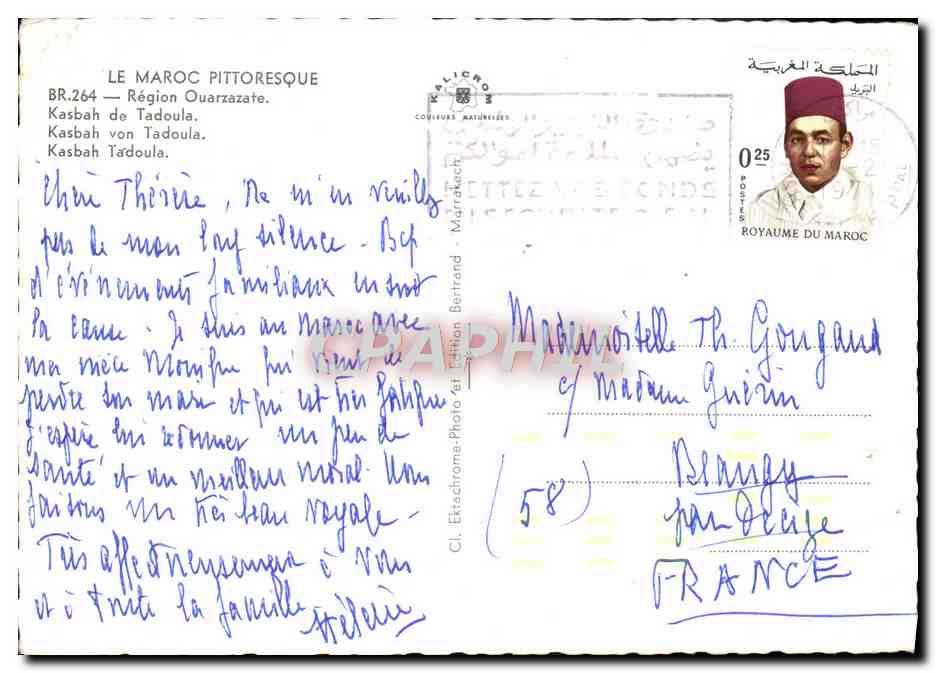 LE MAROC PITTORESQUE
BR.264 — Région Ouarzazate.
Kasbah de Tadoula.
Kasbah von Tadoula.
Kasbah Tadoula.
KALICROM
COULEURS NATURELLES
المملكة المغربية
البريد
0.25
POSTES
ROYAUME DU MAROC
Chère Thérèse, Ne m'en veuillez
pas de mon long silence - Bcp
d'événements familiaux en sont
la cause. Je suis au Maroc avec
ma nièce Monique qui vient de
perdre son mari et qui est très fatiguée
J'espère lui redonner un peu de
santé et un meilleur moral. Nous
faisons un très beau voyage -
Très affectueusement à vous
et à toute la famille
Hélène
Cl. Ektachrome-Photo et Edition Bertrand - Marrakech
CPAPHIL
Mademoiselle Th. Gougaud
c/ Madame Guérin
(58)
par Decize
FRANCE